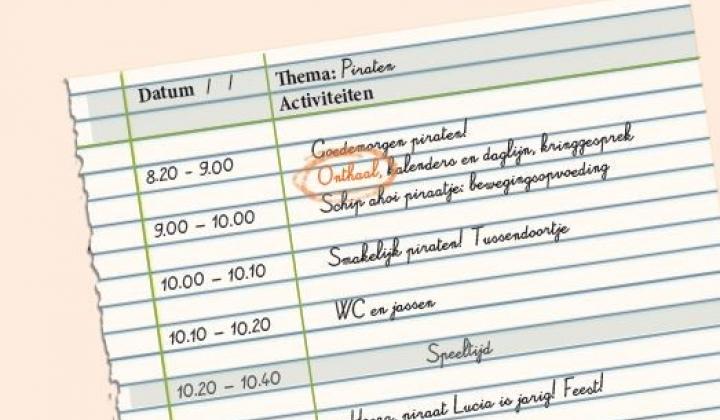 Datum / / Thema: Piraten
Activiteiten
8.20 - 9.00 Goedemorgen piraten!
Onthaal, kalenders en daglijn, kringgesprek
9.00 - 10.00 Schip ahoi piraatje: bewegingsopvoeding
10.00 - 10.10 Smakelijk piraten! Tussendoortje
10.10 - 10.20 WC en jassen
10.20 - 10.40 Speeltijd
piraat Lucia is jarig! Feest!